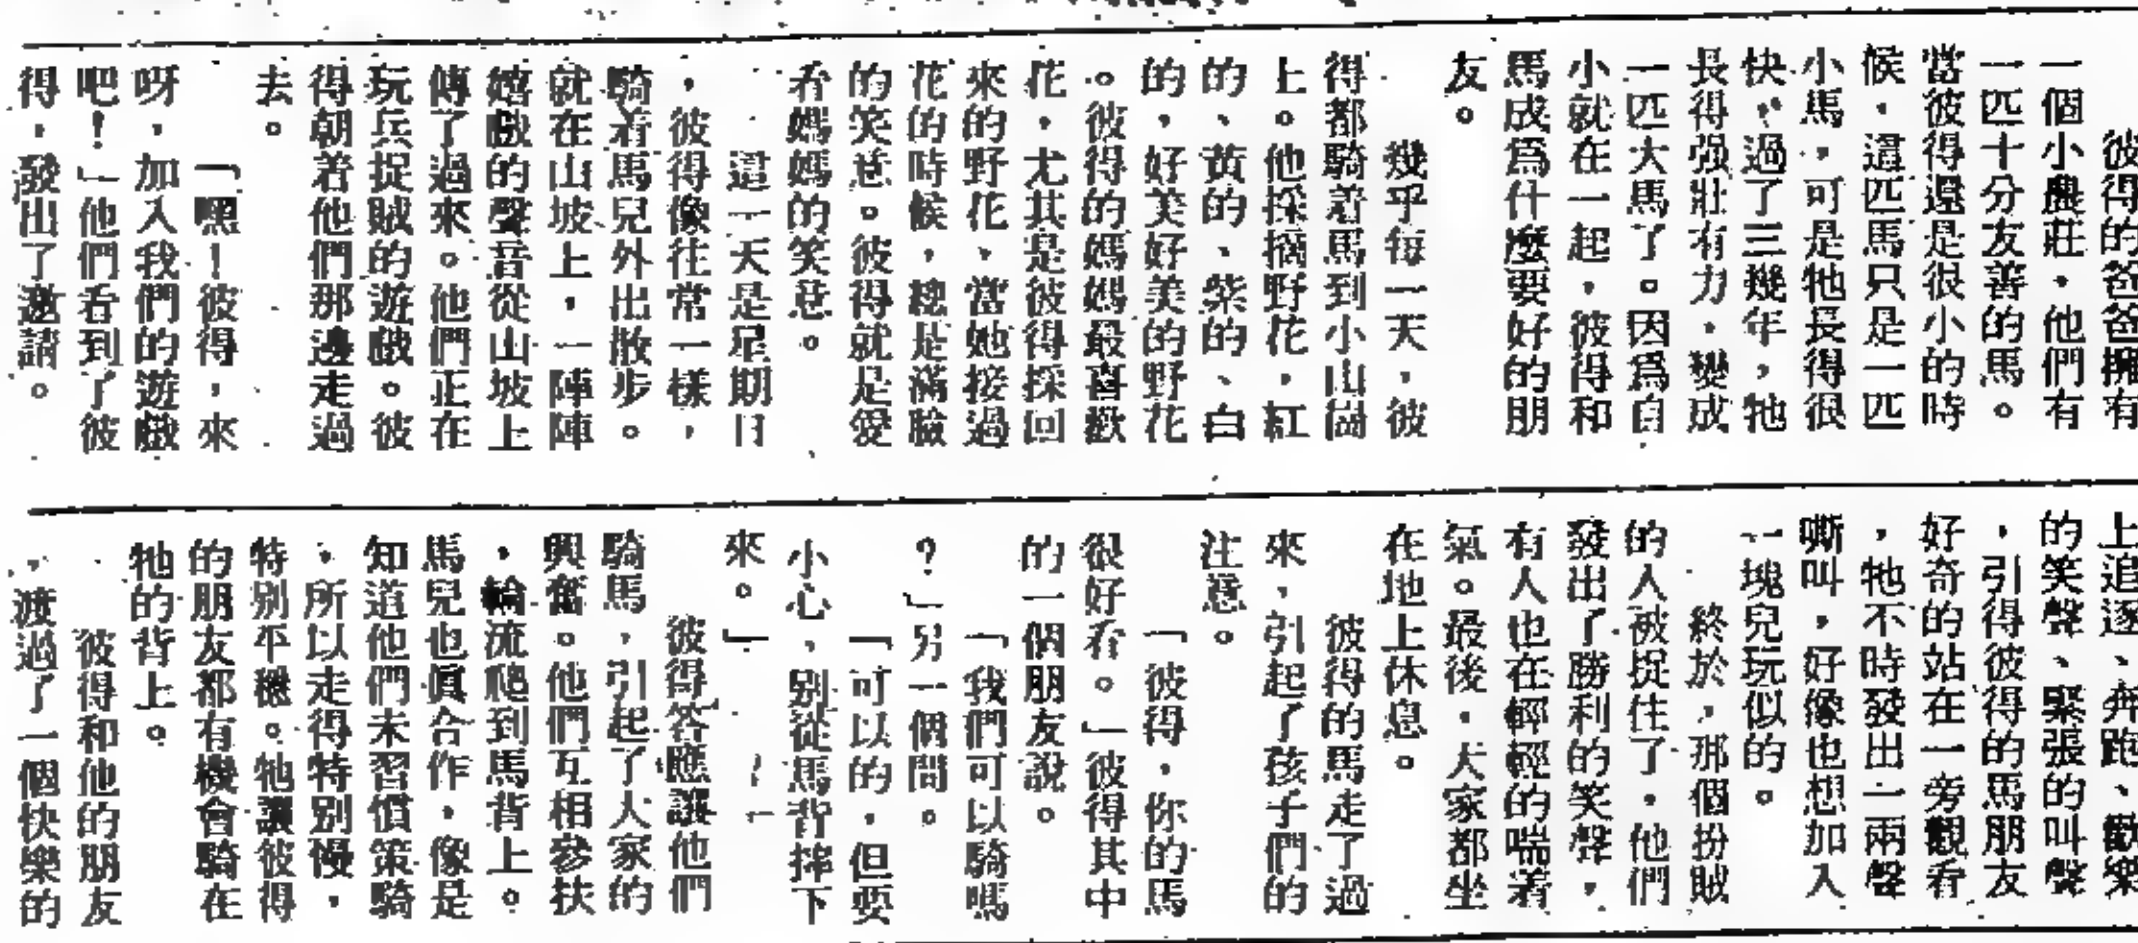 彼得的爸爸擁有
一個小農莊，他們有
一匹十分友善的馬。
當彼得還是很小的時
候，這匹馬只是一匹
小馬，可是牠長得很
快，過了三幾年，牠
長得强壯有力，變成
一匹大馬了。因爲自
小就在一起，彼得和
馬成爲什麼要好的朋
友。
幾乎每一天，彼
得都騎着馬到小山崗
上。他採摘野花，紅
的、黃的、紫的、白
的，好美好美的野花
。彼得的媽媽最喜歡
花，尤其是彼得採回
來的野花、當她接過
花的時候，總是滿臉
的笑意。彼得就是愛
看媽媽的笑意。
這一天是星期日
，彼得像往常一樣，
騎着馬兒外出散步。
就在山坡上，一陣陣
嬉戲的聲音從山坡上
傳了過來。他們正在
玩兵捉賊的遊戲。彼
得朝着他們那邊走過
去。
「嘿！彼得，來
呀，加入我們的遊戲
吧！」他們看到了彼
得，發出了邀請。
上追逐、奔跑、歡樂
的笑聲、緊張的叫聲
，引得彼得的馬朋友
好奇的站在一旁觀看
，牠不時發出一兩聲
嘶叫，好像也想加入
一塊兒玩似的。
終於，那個扮賊
的人被捉住了，他們
發出了勝利的笑聲，
有人也在輕輕的喘着
氣。最後，大家都坐
在地上休息。
彼得的馬走了過
來，引起了孩子們的
注意。
「彼得，你的馬
很好看。」彼得其中
的一個朋友說。
「我們可以騎嗎
？」另一個問。
「可以的，但要
小心，別從馬背摔下
來。」
彼得答應讓他們
騎馬，引起了大家的
興奮。他們互相參扶
，輪流爬到馬背上。
馬兒也眞合作，像是
知道他們未習慣策騎
，所以走得特别慢，
特别平穩。牠讓彼得
的朋友都有機會騎在
牠的背上。
彼得和他的朋友
，渡過了一個快樂的